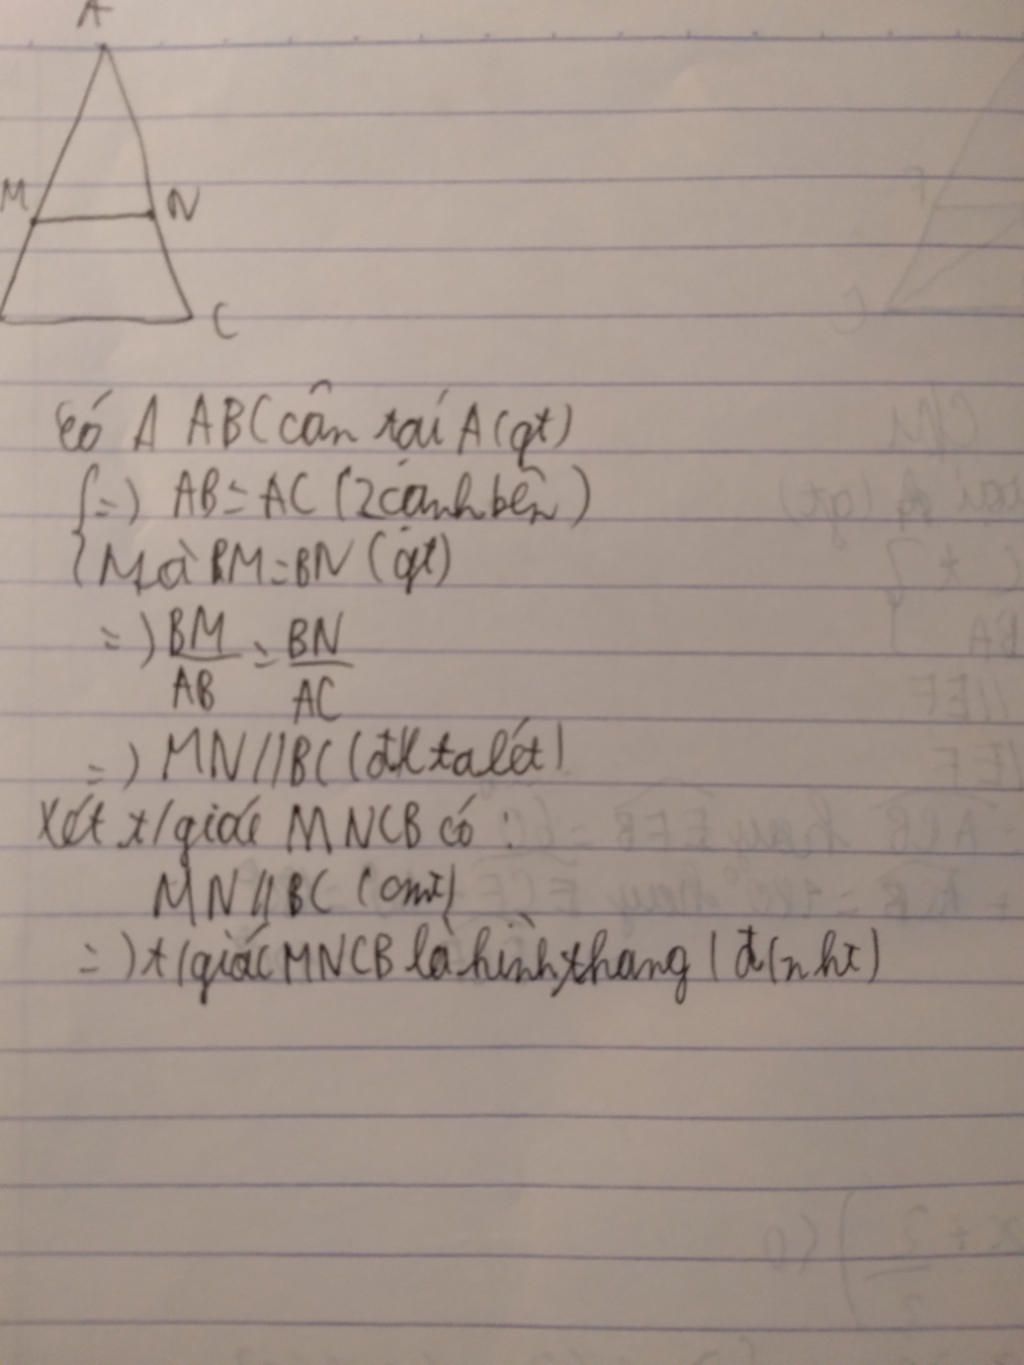 A
M
N
C
Có Δ ABC cân tại A (gt)
=) AB = AC (2 cạnh bên)
Mà BM = BN (gt)
=) BM/AB = BN/AC
=) MN//BC (đl talét)
Xét t/giác MNCB có:
MN//BC (cmt)
=) t/giác MNCB là hình thang (đ/n ht)